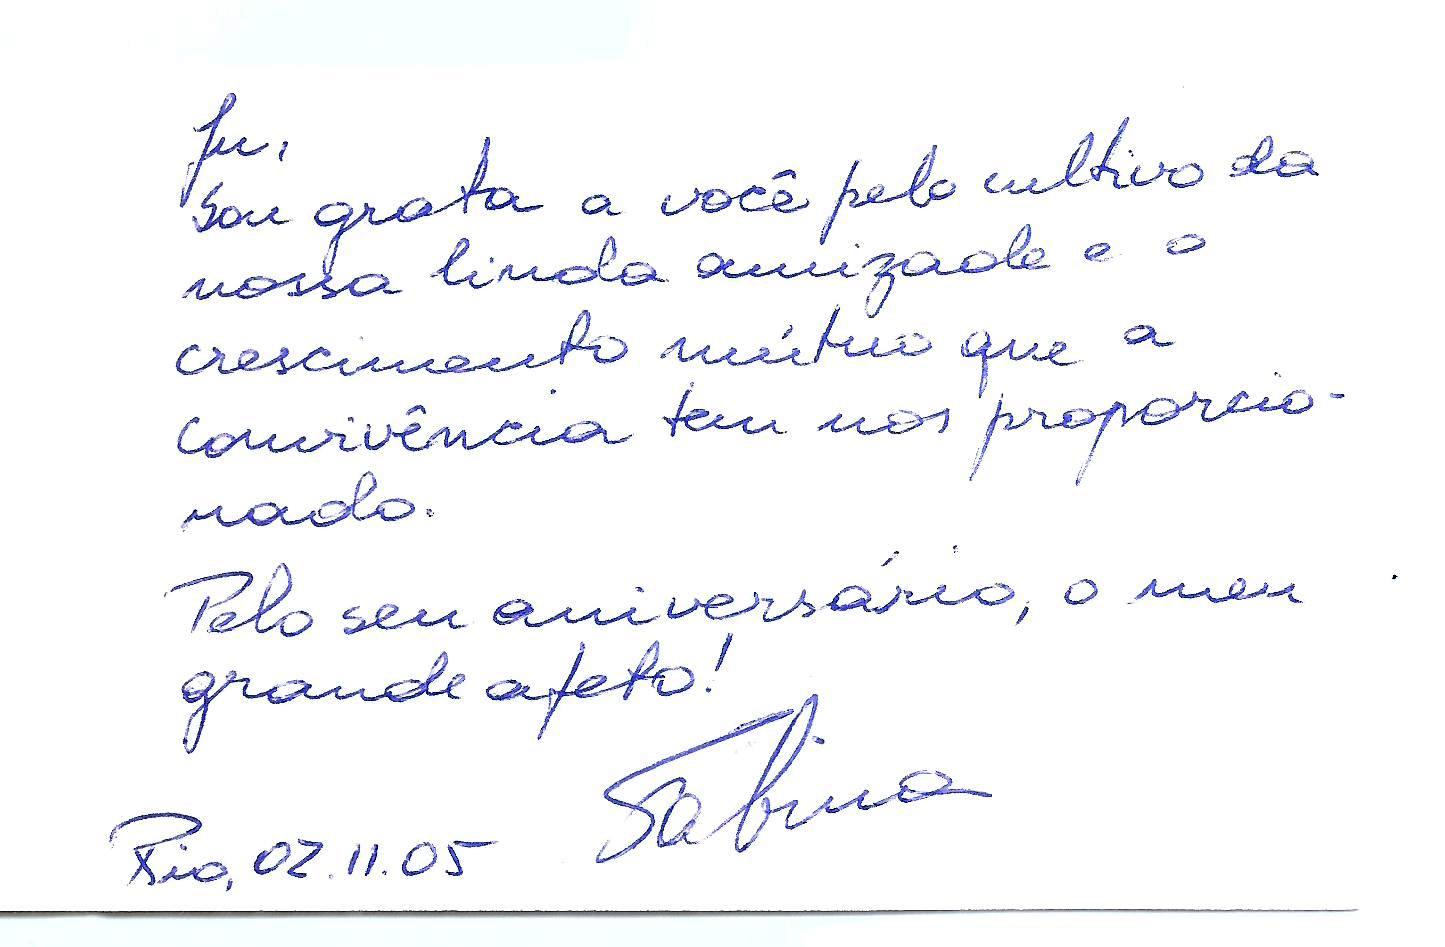 Ju,
Sou grata a você pelo cultivo da
nossa linda amizade e o
crescimento mútuo que a
convivência tem nos proporcio-
nado.
Pelo seu aniversário, o meu
grande afeto!
Sabina
Rio, 02.11.05